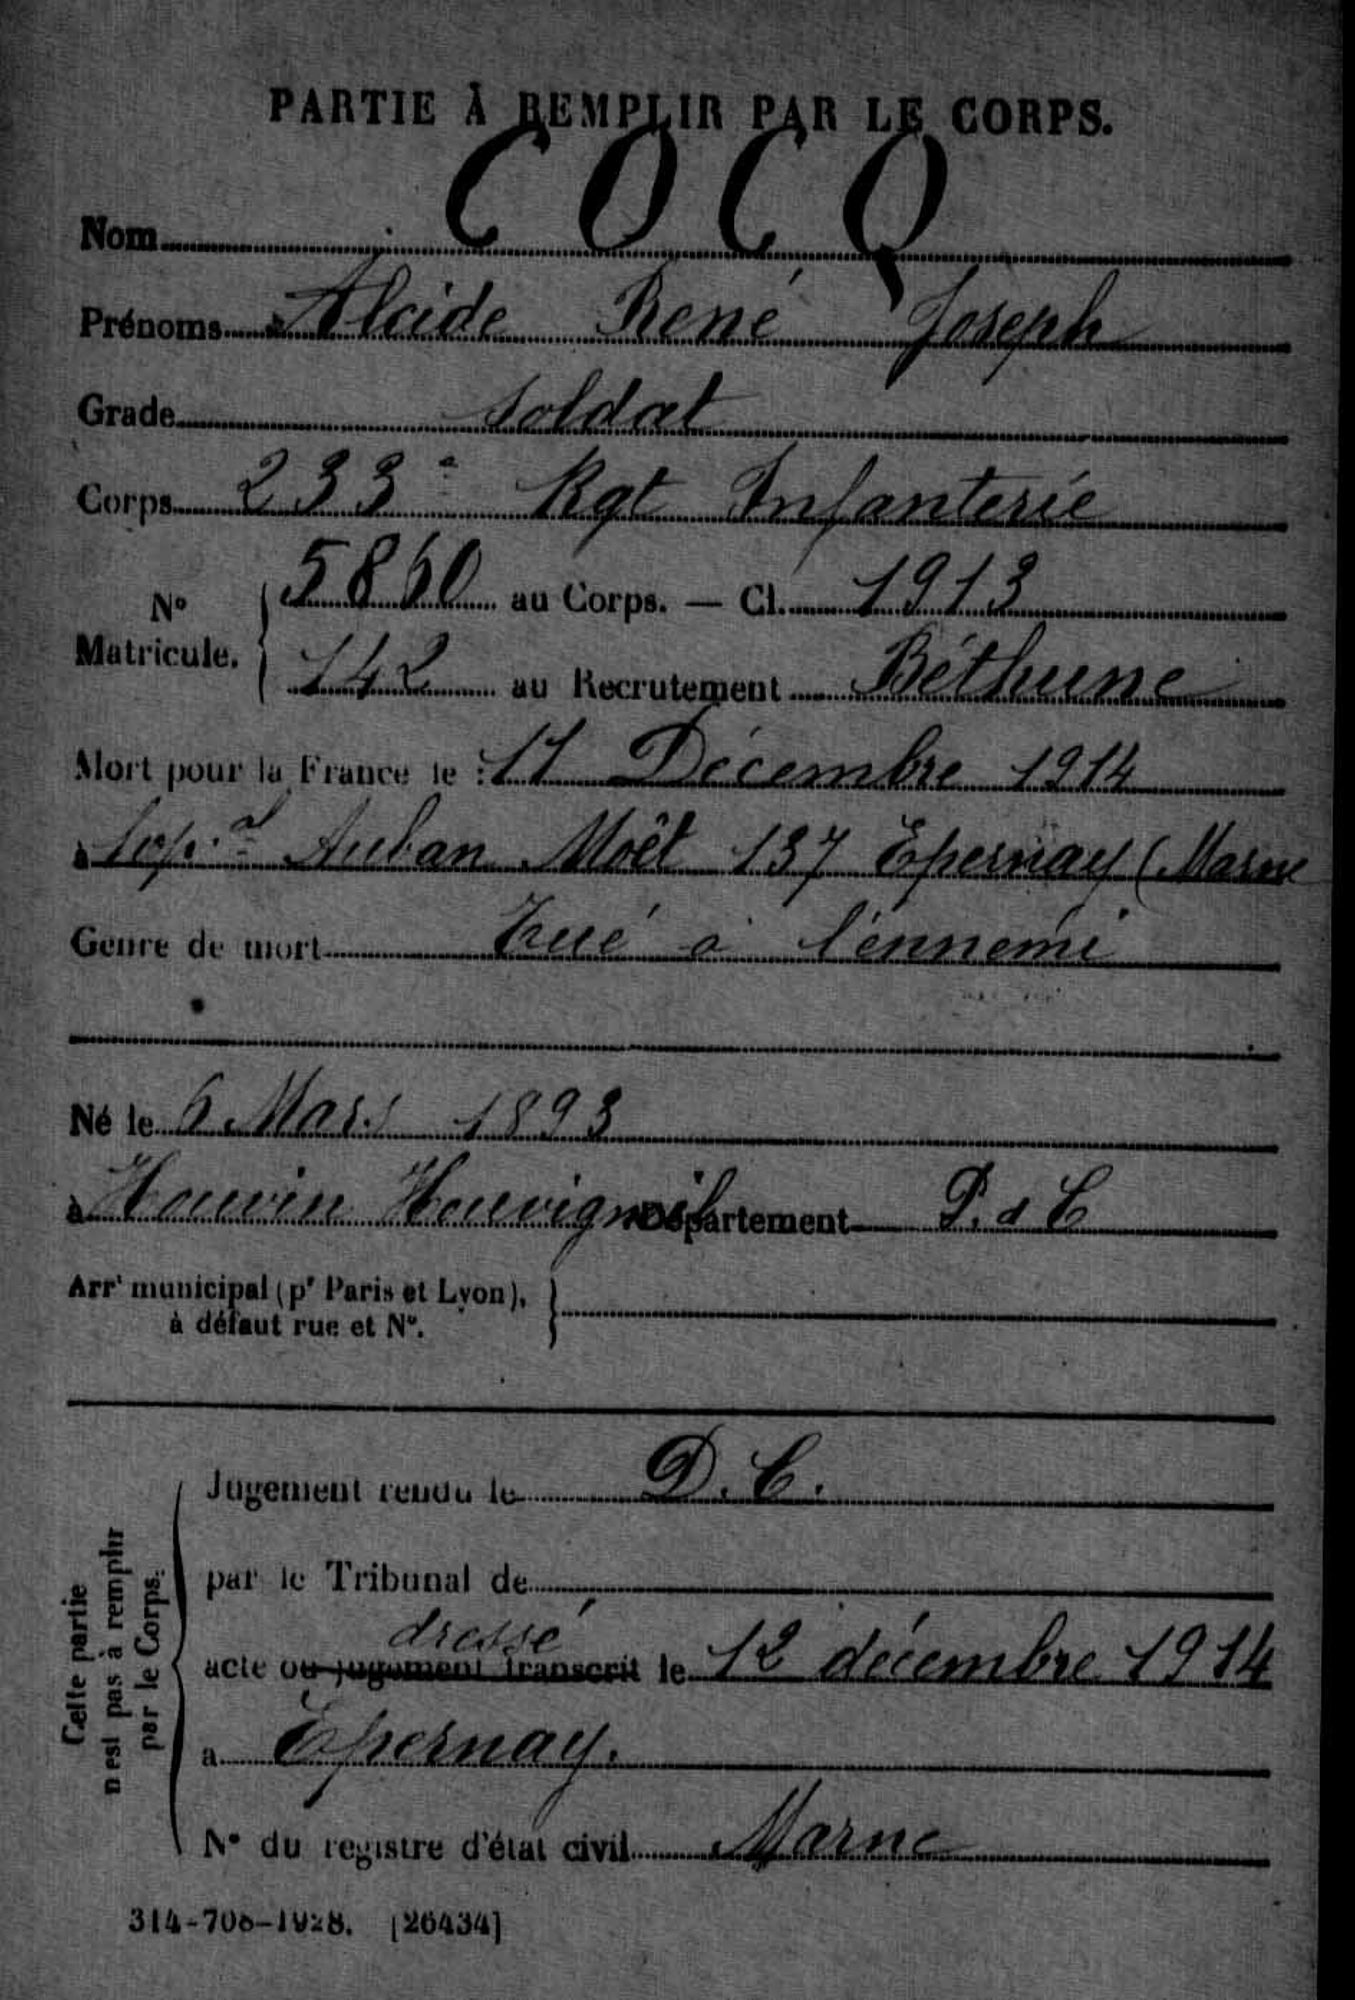 PARTIE À REMPLIR PAR LE CORPS.
Nom COCQ
Prénoms Alcide René Joseph
Grade Soldat
Corps 233e Rgt Infanterie
N° Matricule. 5860 au Corps. — Cl. 1913
142 au Recrutement Béthune
Mort pour la France le : 11 Décembre 1914
à hop.al Auban Moêt 137 Epernay (Marne
Genre de mort Tué à l'ennemi
Né le 6 Mars 1893
à Houvin Houvigneul Département P. d C
Arrt municipal (pr Paris et Lyon), à défaut rue et N°.
Cette partie n'est pas à remplir par le Corps.
Jugement rendu le D. C.
par le Tribunal de
dressé
acte ou jugement transcrit le 12 décembre 1914
a Epernay.
N° du registre d'état civil Marne
314-708-1928. [26434]